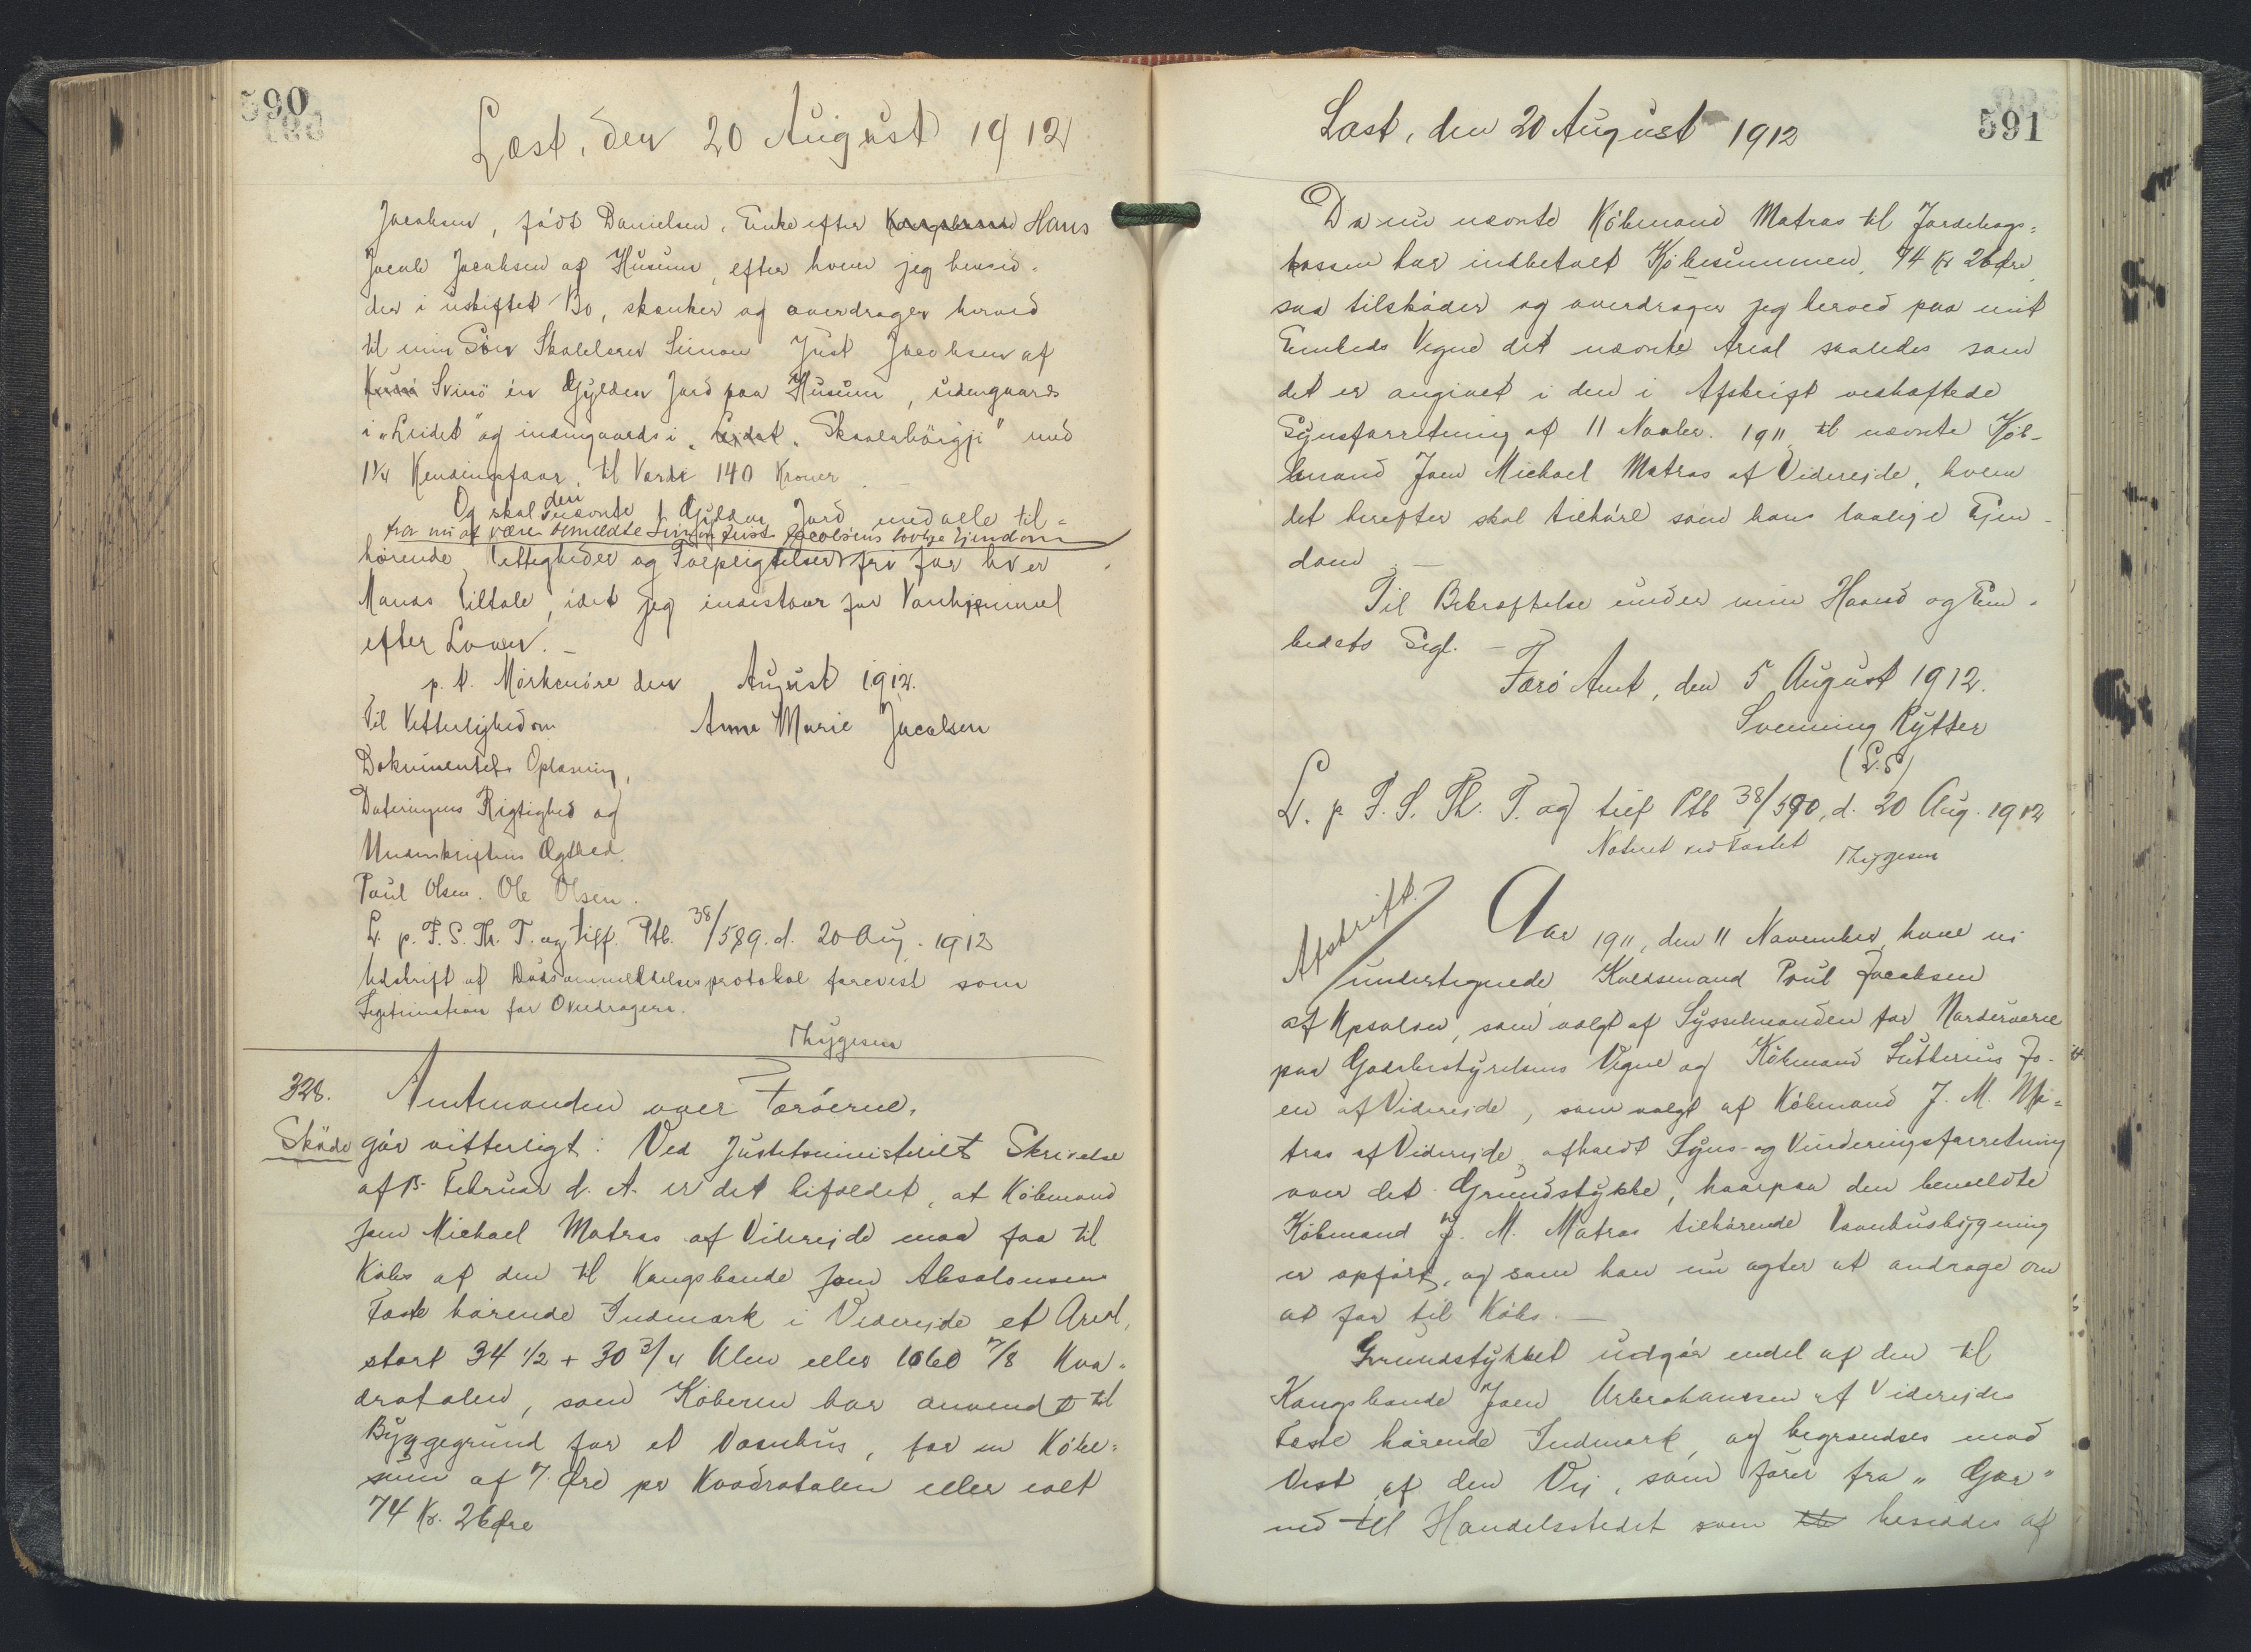 590
Læst, den 20 August 1912
Jacobsen, født Danielsen, Enke efter Kongsbonde Hans
Jacob Jacobsen af Husum, efter hvem jeg hensid-
der i uskiftet Bo, skænker og overdrager herved
til min Søn Skolelærer Simon Just Jacobsen af
Kunø Svinø én Gylden Jord paa Husum, udengaards
i „Leidet" og indengaards i „Leidet „Skaalabörgji" med
1¼ Kendingsfaar, til Værdi 140 Kroner.
Og skal den nævnte 1 Gylden Jord med alle til-
fra nu af være bemeldte Simon Just Jacobsens lovlige Ejendom
hørende Rettigheder og Forpligtelser fri for hver
Mands Tiltale, idet jeg indestaar for Vanhjemmel
efter Loven. –
p. t. Mørkenøre den August 1912.
Til Vitterlighed om Anne Marie Jacobsen
Dokumentets Oplæsning,
Dateringens Rigtighed og
Underskriftens Ægthed.
Poul Olsen. Ole Olsen.
L. p. F. S. Th. T. og tilf. Ptb. 38/589. d. 20 Aug. 1912
Udskrift af Dødsanmeldelsesprotokol forevist som
Legitimation for Overdragern.
Thygesen
328. Amtmanden over Færøerne,
Skøde gør vitterligt: Ved Justitsministeriets Skrivelse
af 13. Februar d. A. er det bifaldet, at Købmand
Joen Michael Matras af Viderejde maa faa til
Købs af den til Kongsbonde Joen Absalonsens
Fæste hørende Indmark i Viderejde et Areal,
stort 34 ½ + 30 ¾ Alen eller 1060 7/8 Kva-
dratalen, som Køberen har anvendt til
Byggegrund for et Vaanhus, for en Købe-
sum af 7 Øre pr Kvadratalen eller ialt
74 Kr. 26 Øre
591
Læst, den 20 August 1912
Da nu nævnte Købmand Matras til Jordebogs-
kassen har indbetalt Købesummen, 74 Kr 26 Øre,
saa tilskøder og overdrager jeg herved paa mit
Embeds Vegne det nævnte Areal saaledes som
det er angivet i den i Afskrift vedhæftede
Synsforretning af 11 Novbr. 1911, til nævnte Køb-
mand Joen Michael Matras af Viderejde, hvem
det herefter skal tilhøre som hans lovlige Ejen-
dom. –
Til Bekræftelse under min Haand og Em-
bedets Segl. –
Færø Amt, den 5 August 1912.
Svenning Rytter
(L.S)
L. p. F. S. Th. T. og tilf Ptb 38/590, d. 20 Aug. 1912
Noteret ved Fæstet Thygesen
Afskrift.
Aar 1911, den 11 November, have vi
undertegnede Kaldsmand Poul Jacobsen
af Upsalen, som valgt af Sysselmanden for Norderøerne
paa Godsbestyrelsens Vegne og Købmand Lutterius Jo-
en af Viderejde, som valgt af Købmand J. M. Ma-
tras af Viderejde, afholdt Syns- og Vurderingsforretning
over det Grundstykke, hvorpaa den bemeldte
Købmand J. M. Matras tilhørende Vaanhusbygning
er opført, og som han nu agter at andrage om
at faa til Købs. –
Grundstykket udgør endel af den til
Kongsbonde Joen af Viderejdes
Fæste hørende Indmark, og begrændses mod
Vest af den Vej, som fører fra „Gar"
ned til Handelsstedet som besiddes af